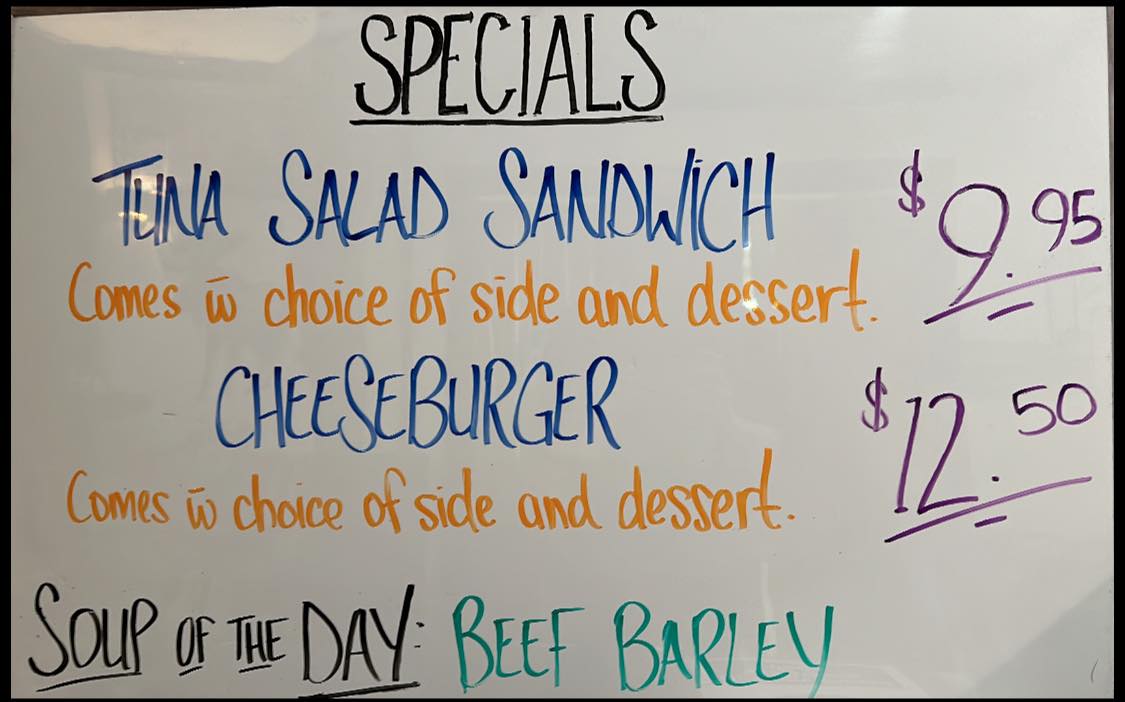 SPECIALS
TUNA SALAD SANDWICH $9.95
Comes w̄ choice of side and dessert.
CHEESEBURGER $12.50
Comes w̄ choice of side and dessert.
SOUP OF THE DAY: BEEF BARLEY